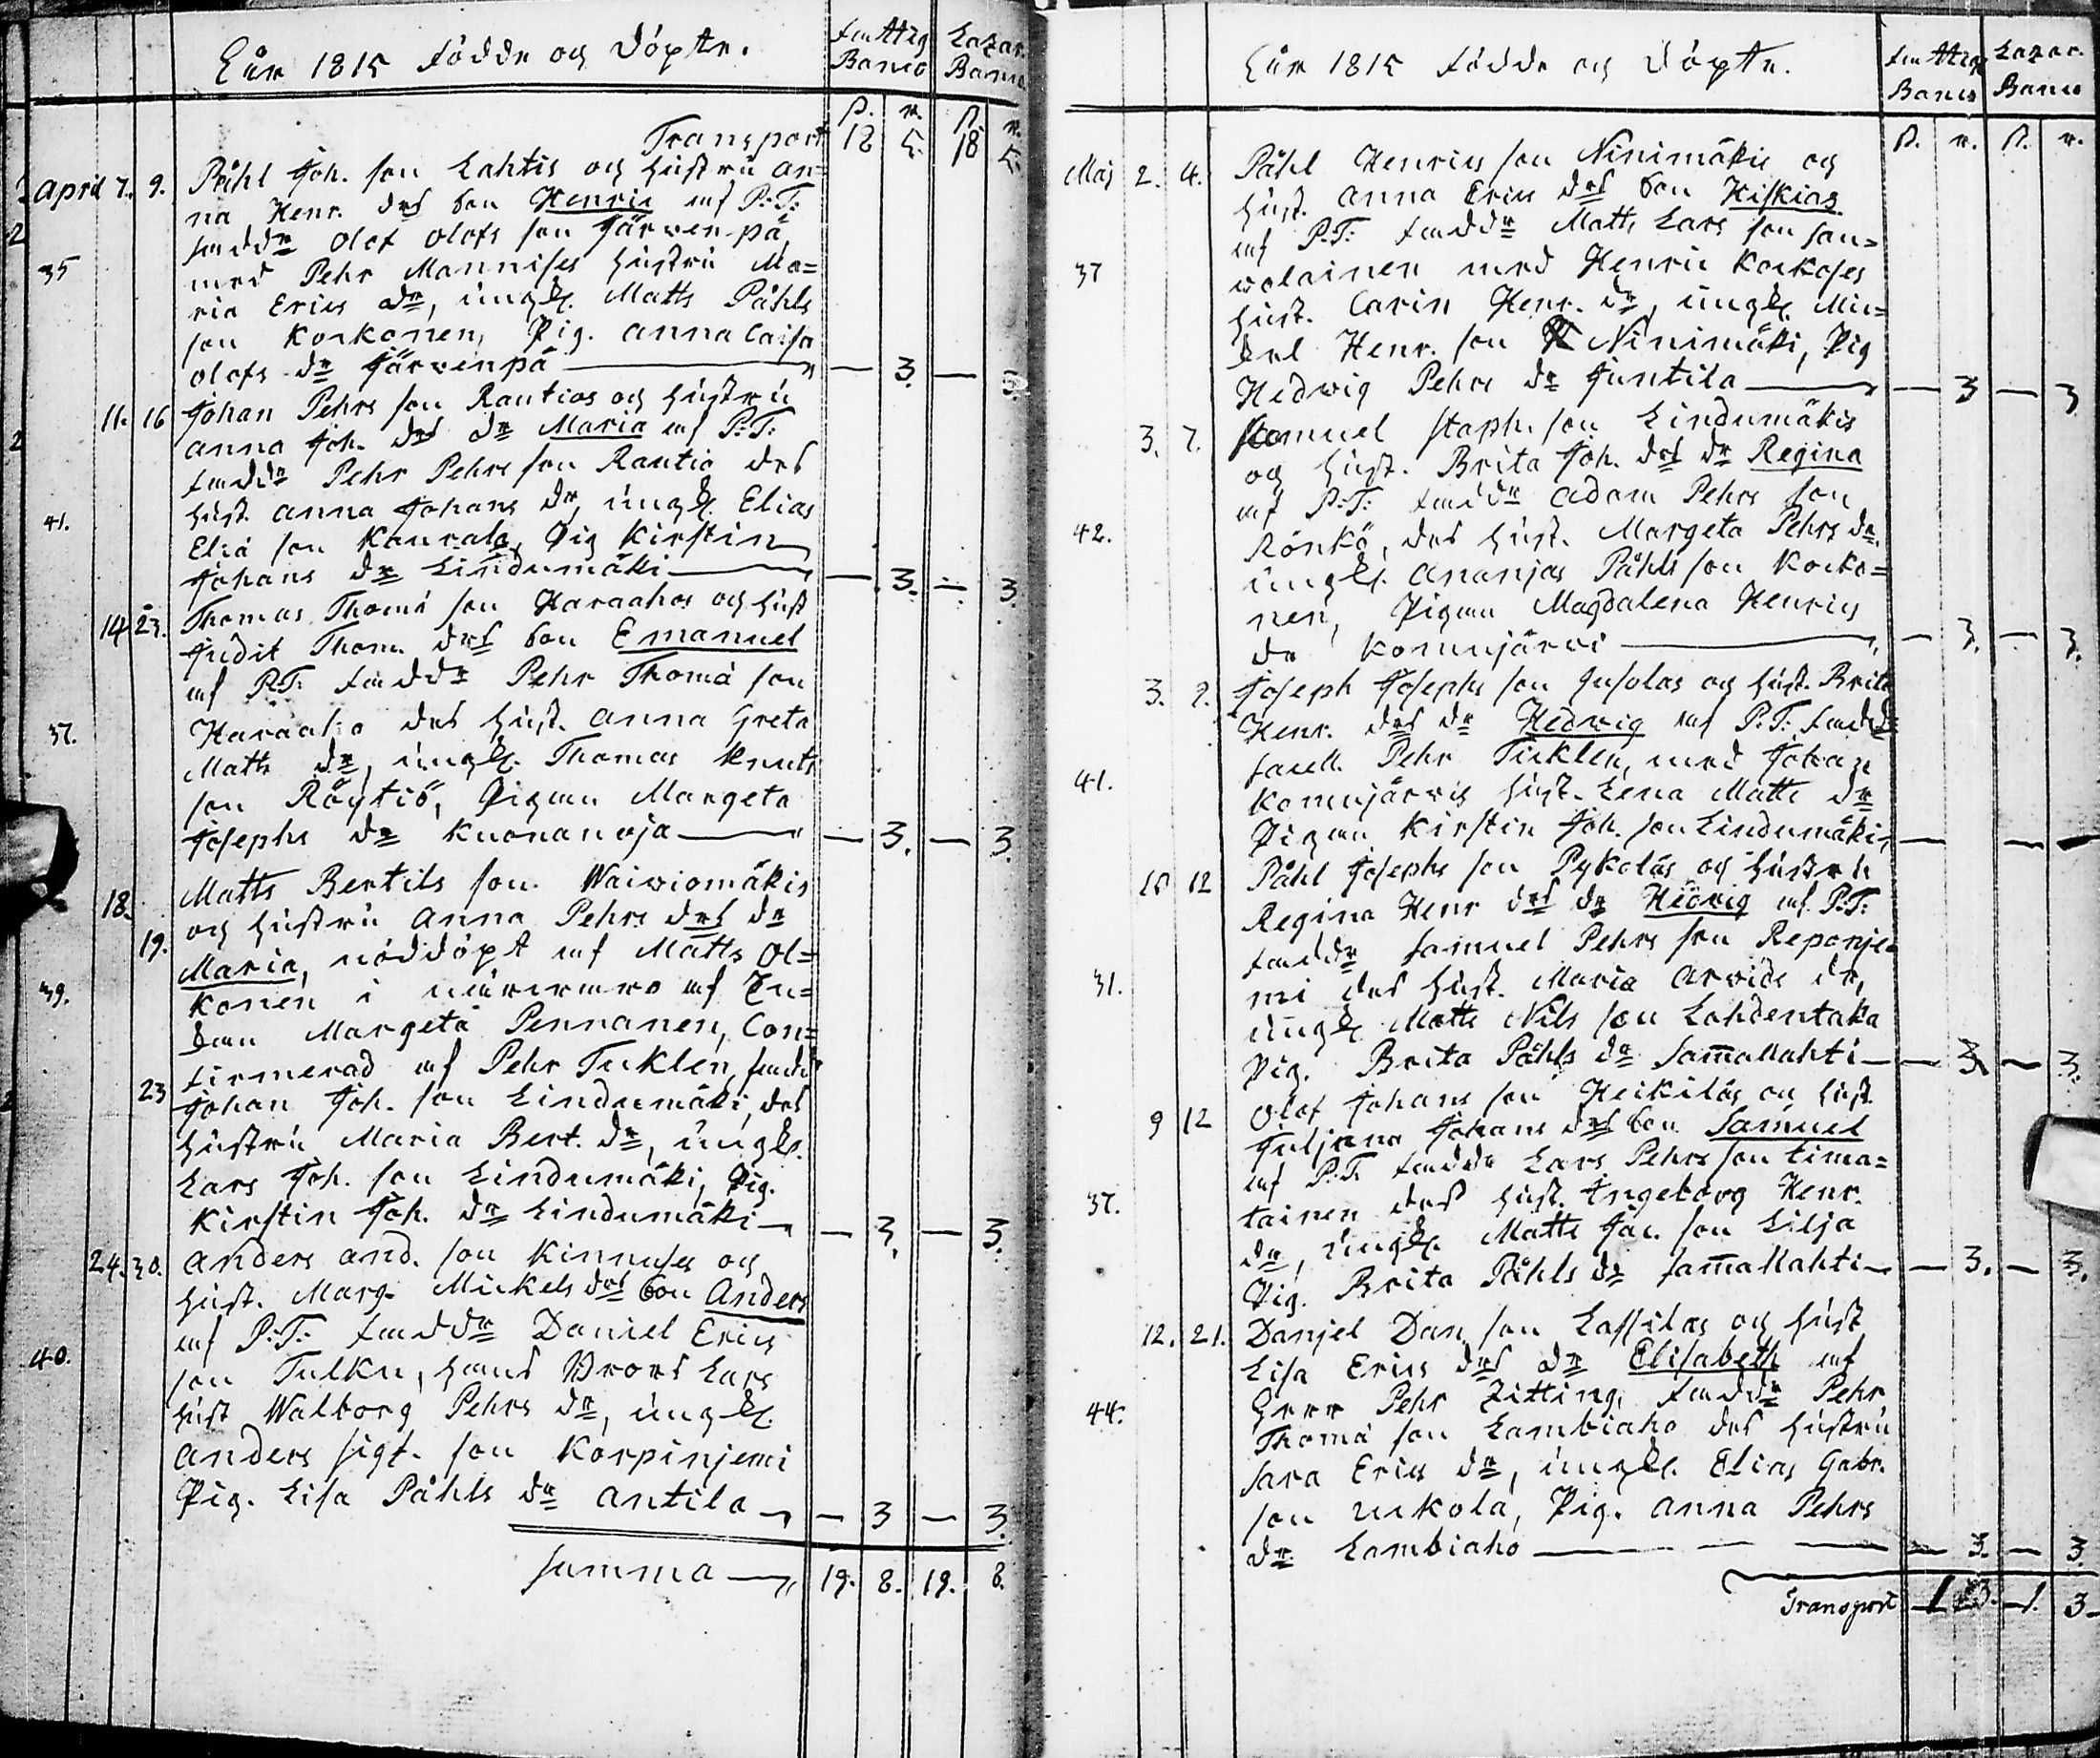 Åhr 1815 födde och döpte.
Fattig Banco
Lazar. Banco
ß. r. ß. r.
Transport 18 5. 18 5.
April 7. 9. Påhl Joh. son Lahtis och hustru An=
na Henr. drs son Henric af P:T:
faddr Olof Olofs son Järvenpä
35 med Pehr Mannises hustru Ma=
ria Erics dr, ungk. Matts Påhls
son Korkonen, Pig. Anna Caisa
Olofs dr Järvenpä — 3. — 3.
11. 16 Johan Pehrs son Rautios och hustru
Anna Joh. drs dr Maria af P:T:
faddr Pehr Pehrs son Rautio des
hust. Anna Johans dr, ungk. Elias
41. Eliæ son Kaurala, Pig Kirstin
Johans dr Lindumäki — 3. — 3.
14 23. Thomas Thomæ son Haraahos och hust
Judit Thom. drs son Emanuel
af P:T: faddr Pehr Thomæ son
37. Haraaho des hust. Anna Greta
Matts dr, ungk. Thomas Knuts
son Röytiö, Pigan Margeta
Josephs dr Kuonanoja — 3. — 3.
18. Matts Bertils son Waiviomäkis
och hustru Anna Pehrs drs dr
19. Maria, nöddöpt af Matts Ol=
39. konen i närvaro af En=
kan Margeta Pennanen, Con=
firmerad af Pehr Ticklen, faddr
23 Johan Joh. son Lindumäki, des
hustru Maria Bert. dr, ungk.
Lars Joh. son Lindumäki, Pig.
Kirstin Joh. dr Lindumäki — 3. — 3.
24. 30. Anders And. son Kinnuses och
hust. Marg. Mickels drs son Anders
af P:T: faddr Daniel Erics
40. son Tulku, hans Brors Lars
hust Walborg Pehrs dr, ungk.
Anders Sigf. son Korpinjemi
Pig. Lisa Påhls dr Antila — 3 — 3.
Summa — 19. 8. 19. 8.
Åhr 1815 födde och döpte.
Fattig Banco
Lazar. Banco
ß. r. ß. r.
Maj 2. 4. Påhl Henrics son Ninimäkis och
hust. Anna Erics drs son Hiskias
af P:T: faddr Matts Lars son Sau=
37 wolainen med Henric Korkoses
hust. Carin Henr. dr, ungk. Mic=
kel Henr. son Ninimäki, Pig
Hedwig Pehrs dr Juntila — 3 — 3
3. 7. Samuel Staph. son Lindumäkis
och hust. Brita Joh. drs dr Regina
af P:T: faddr Adam Pehrs son
42. Rönkö, des hust. Margeta Pehrs dr.
ungk. Ananjas Påhls son Korko=
nen, Pigan Magdalena Henrics
dr Komujärvi — 3. — 3.
3. 9. Joseph Josephs son Jusolas och hust. Brita
Henr. drs dr Hedwig af P:T: faddr
Pehr Ticklen, med Johan
41. Komujärvis hust. Lena Matts dr
Pigan Kirstin Joh. son Lindumäki, — —
10 12 Påhl Josephs son Pykoläs och hustru
Regina Henr drs dr Hedvig af P:T:
faddr Samuel Pehrs son Reponje
31. mi des hust. Maria Arvids dr,
ungk. Matts Nils son Lahdentaka
Pig. Brita Påhls dr Sammallahti — 3 — 3.
9 12 Olof Johans son Heikiläs och hust
Juljana Johans drs son Samuel
af P:T: faddr Lars Pehrs son Lima=
37. tainen des hust. Ingeborg Henr.
dr, ungk. Matts Jac. son Lilja
Pig. Brita Påhls dr Sammallahti — 3. — 3.
12. 21. Danjel Dan. son Lassilas och hust
Lisa Erics drs dr Elisabeth af
44. Herr Pehr Zitting, faddr Pehr
Thomæ son Lambiaho des hustru
Sara Erics dr, ungk. Elias Gabr.
son Uukola, Pig. Anna Pehrs
dr Lambiaho — 3. — 3.
Transport 1 3. 1. 3